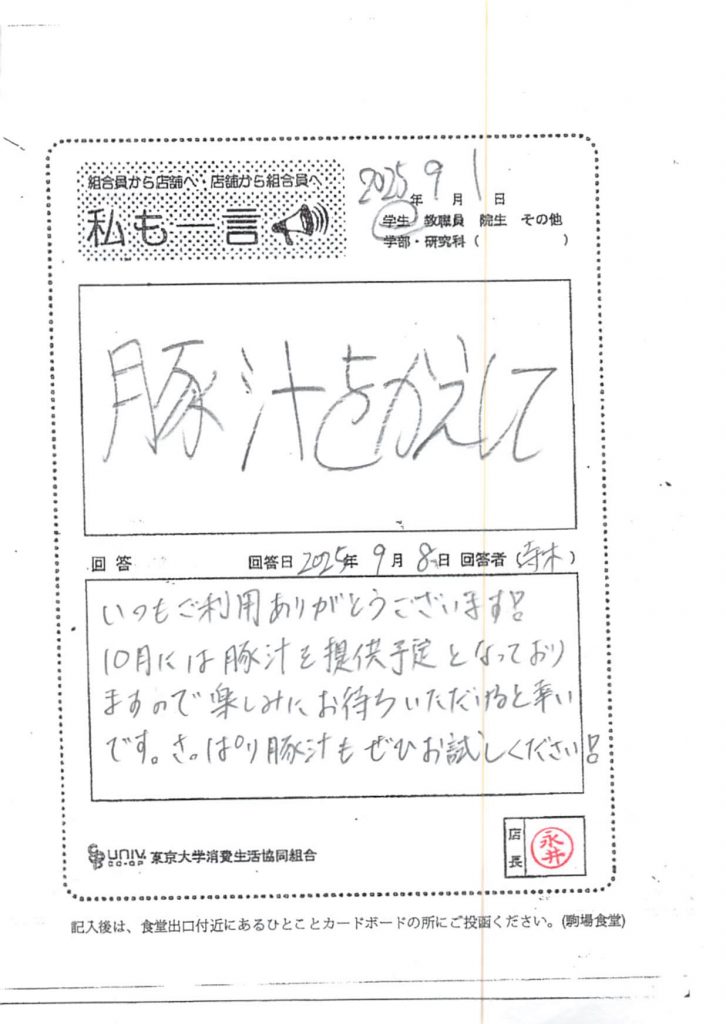 組合員から店舗へ・店舗から組合員へ
私も一言
2025年 9月 1日
学生 教職員 院生 その他
学部・研究科 ( )
豚汁をかえして
回答 回答日 2025年 9月 8日 回答者 (寺木)
いつもご利用ありがとうございます!!
10月には豚汁を提供予定となっており
ますので楽しみにお待ちいただけると幸い
です。さっぱり豚汁もぜひお試しください!!
UNIV. CO-OP 東京大学消費生活協同組合
店長 永井
記入後は、食堂出口付近にあるひとことカードボードの所にご投函ください。(駒場食堂)